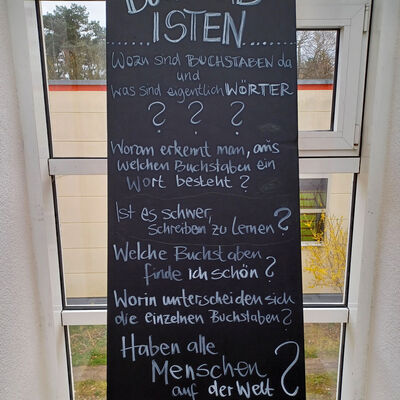 ISTEN...
Wozu sind BUCHSTABEN da
und
was sind eigentlich WÖRTER
? ? ?
Woran erkennt man, aus
welchen Buchstaben ein
Wort besteht?
Ist es schwer,
Schreiben zu Lernen?
Welche Buchstaben
finde ich schön?
Worin unterscheiden sich
die einzelnen Buchstaben?
Haben alle
Menschen
auf der Welt ?